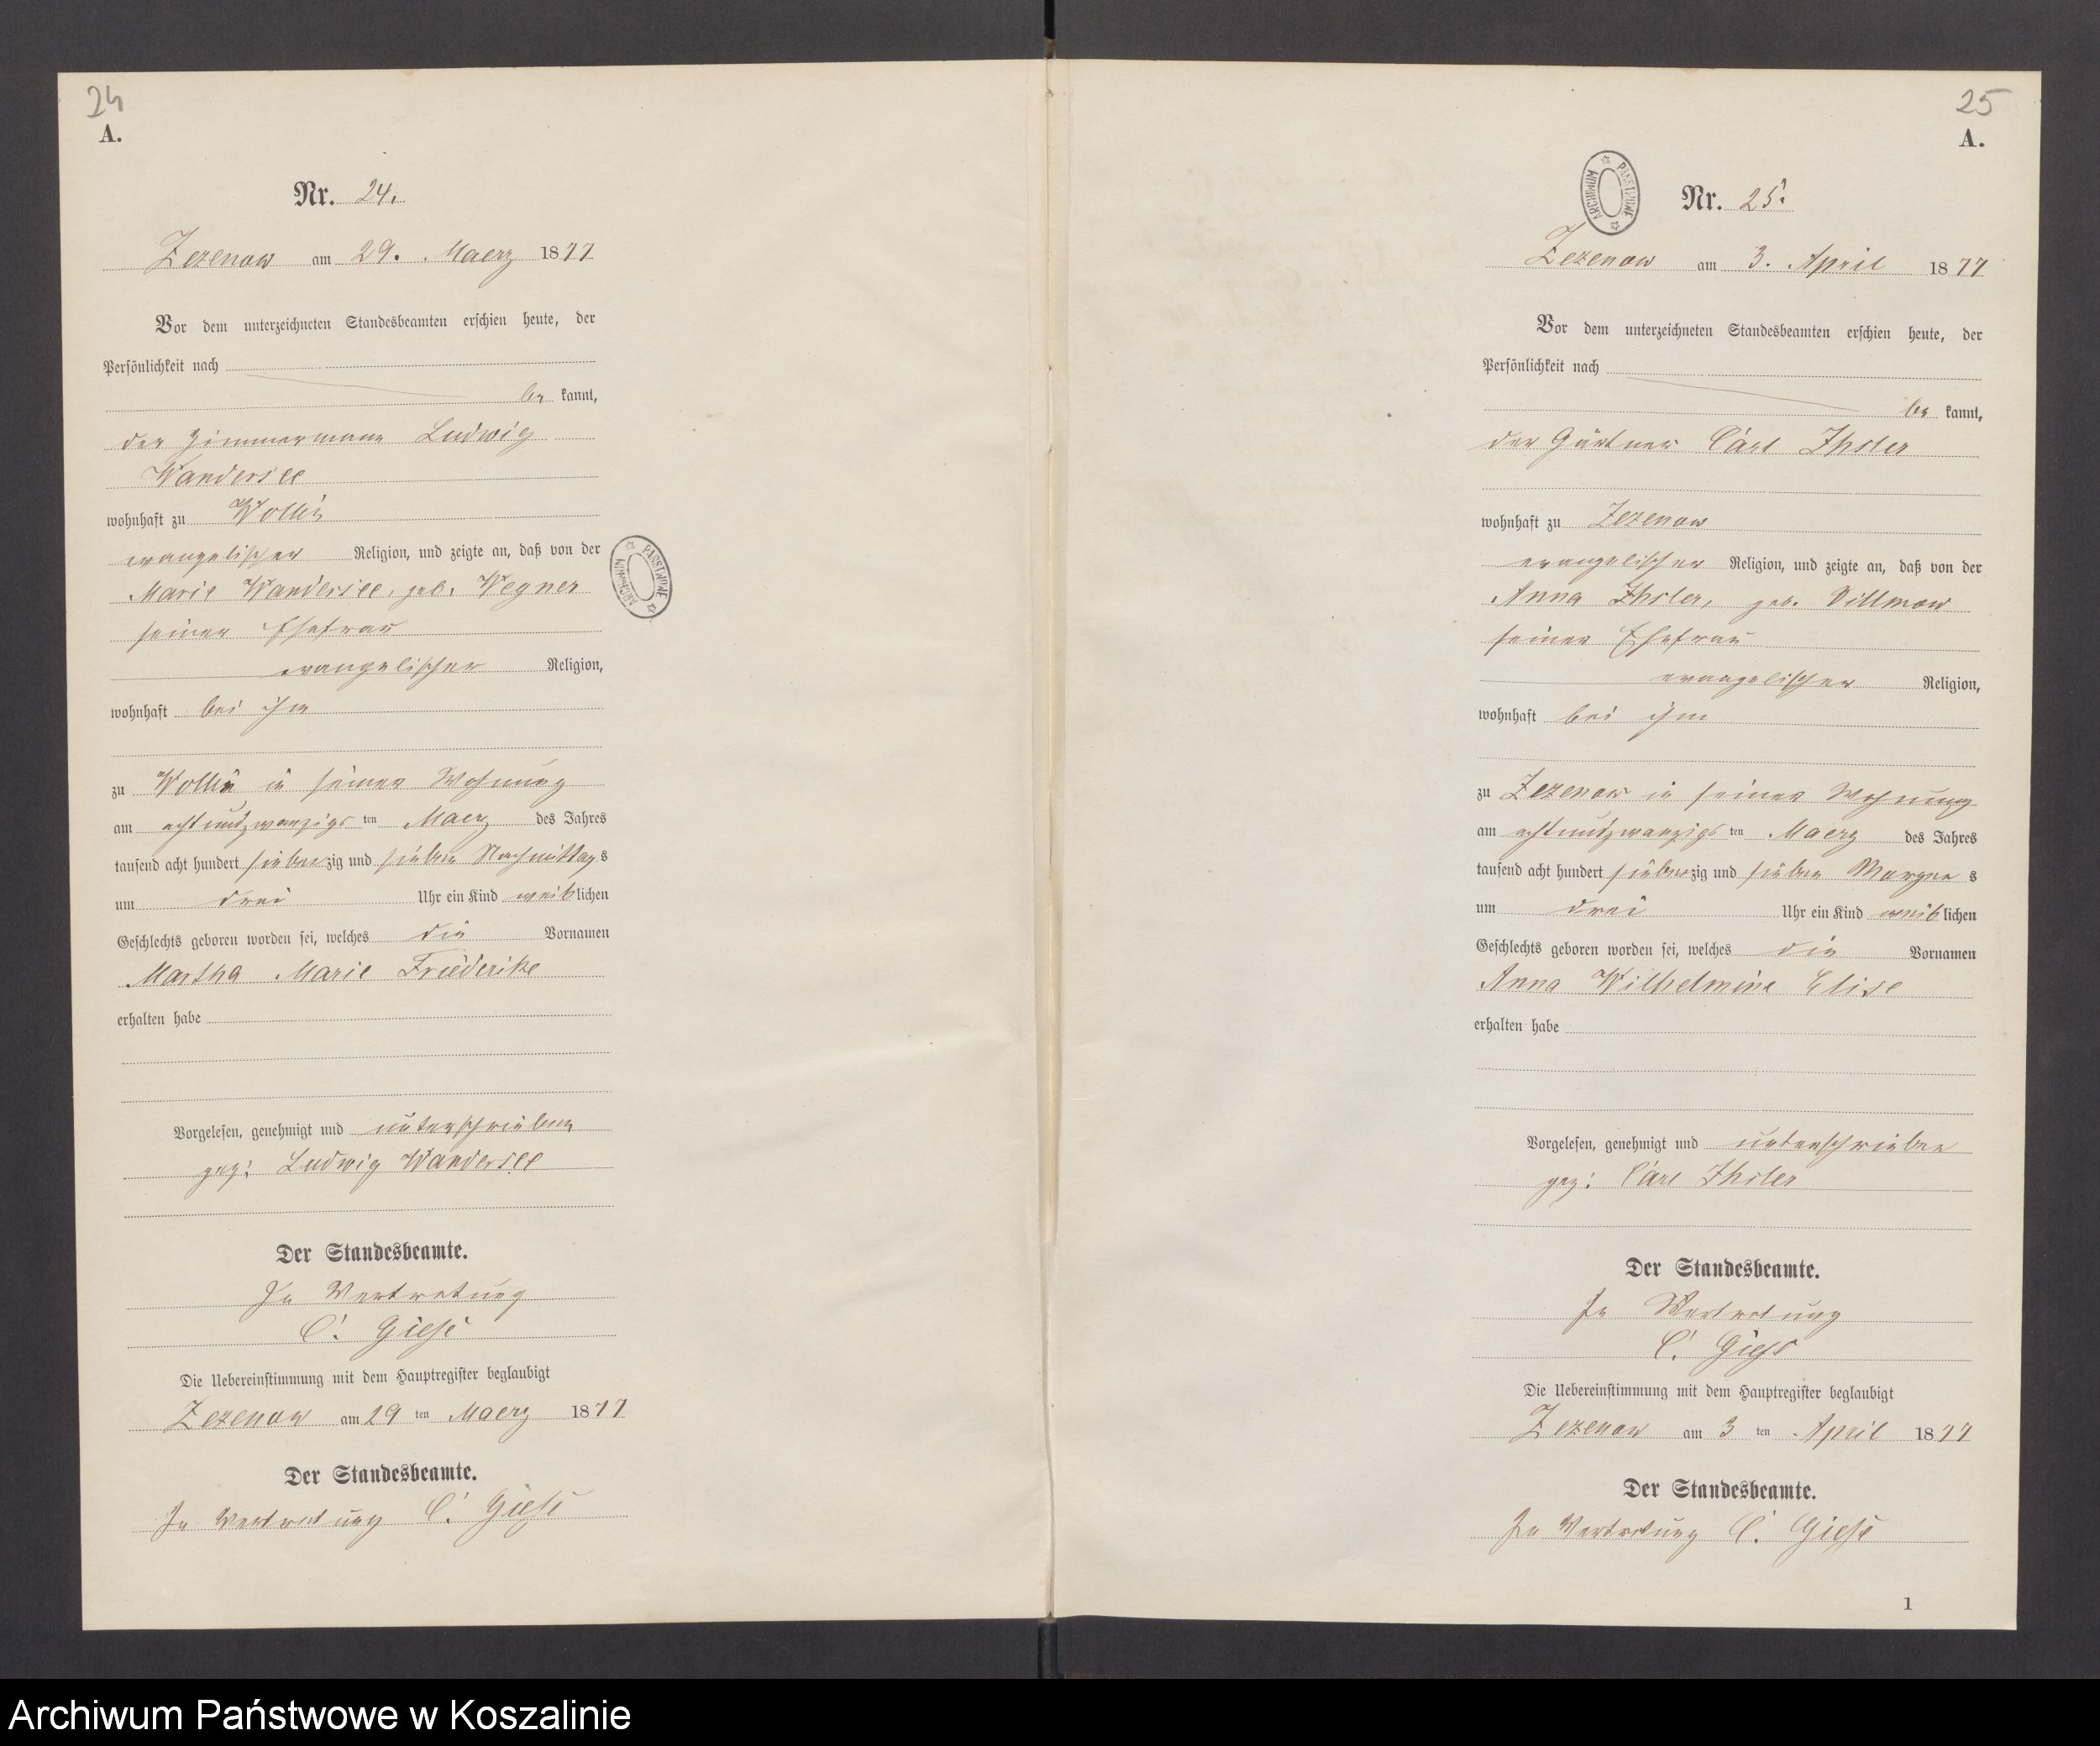 24
A.
Nr. 24.
Zezenow am 29. Maerz 1877
Vor dem unterzeichneten Standesbeamten erschien heute, der
Persönlichkeit nach
be kannt,
der Zimmermann Ludwig
Wandersee
wohnhaft zu Wollin
evangelischer Religion, und zeigte an, daß von der
Marie Wandersee, geb. Wegner
seiner Ehefrau
evangelischer Religion,
wohnhaft bei ihm
zu Wollin in seiner Wohnung
am achtundzwanzigs ten Maerz des Jahres
tausend acht hundert siebenzig und sieben Nachmittags
um drei Uhr ein Kind weiblichen
Geschlechts geboren worden sei, welches die Vornamen
Martha Marie Friederike
erhalten habe
Vorgelesen, genehmigt und unterschrieben
gez: Ludwig Wandersee
Der Standesbeamte.
In Vertretung
C. Giese
Die Uebereinstimmung mit dem Hauptregister beglaubigt
Zezenow am 29 ten Maerz 1877
Der Standesbeamte.
In Vertretung C. Giese
ARCHIWUM PAŃSTWOWE
25
A.
ARCHIWUM PAŃSTWOWE
Nr. 25.
Zezenow am 3. April 1877
Vor dem unterzeichneten Standesbeamten erschien heute, der
Persönlichkeit nach
be kannt,
der Gärtner Carl Ihsler
wohnhaft zu Zezenow
evangelischer Religion, und zeigte an, daß von der
Anna Ihsler, geb. Dillmow
seiner Ehefrau
evangelischer Religion,
wohnhaft bei ihm
zu Zezenow in seiner Wohnung
am achtundzwanzigs ten Maerz des Jahres
tausend acht hundert siebenzig und sieben Morgens
um drei Uhr ein Kind weiblichen
Geschlechts geboren worden sei, welches die Vornamen
Anna Wilhelmine Elise
erhalten habe
Vorgelesen, genehmigt und unterschrieben
gez: Carl Ihsler
Der Standesbeamte.
In Vertretung
C. Giese
Die Uebereinstimmung mit dem Hauptregister beglaubigt
Zezenow am 3 ten April 1877
Der Standesbeamte.
In Vertretung C. Giese
1
Archiwum Państwowe w Koszalinie